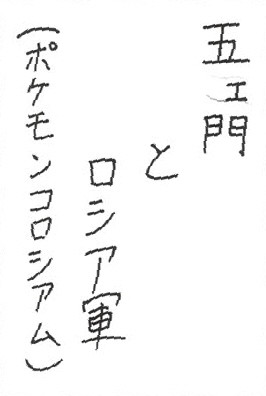 五エ門
と
ロシア軍
(ポケモンコロシアム)